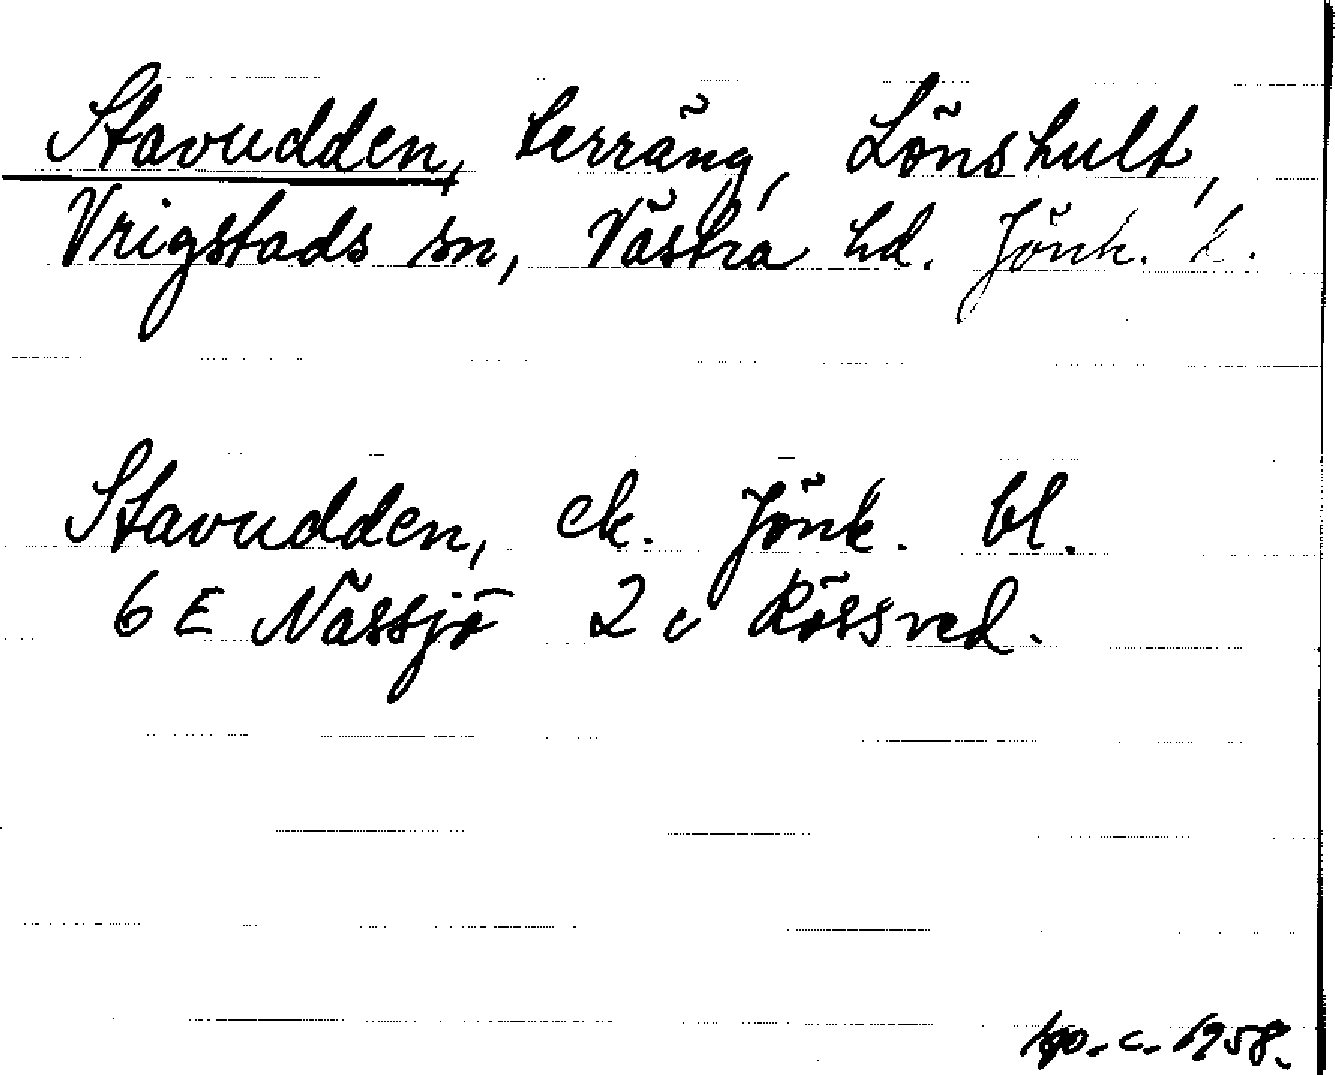 Stavudden, terräng, Lönshult,
Vrigstads sn, Västra hd. Jönk. l.
Stavudden, ek. Jönk. bl.
6 E Nässjö 2 c Rössved.
c. 1958.